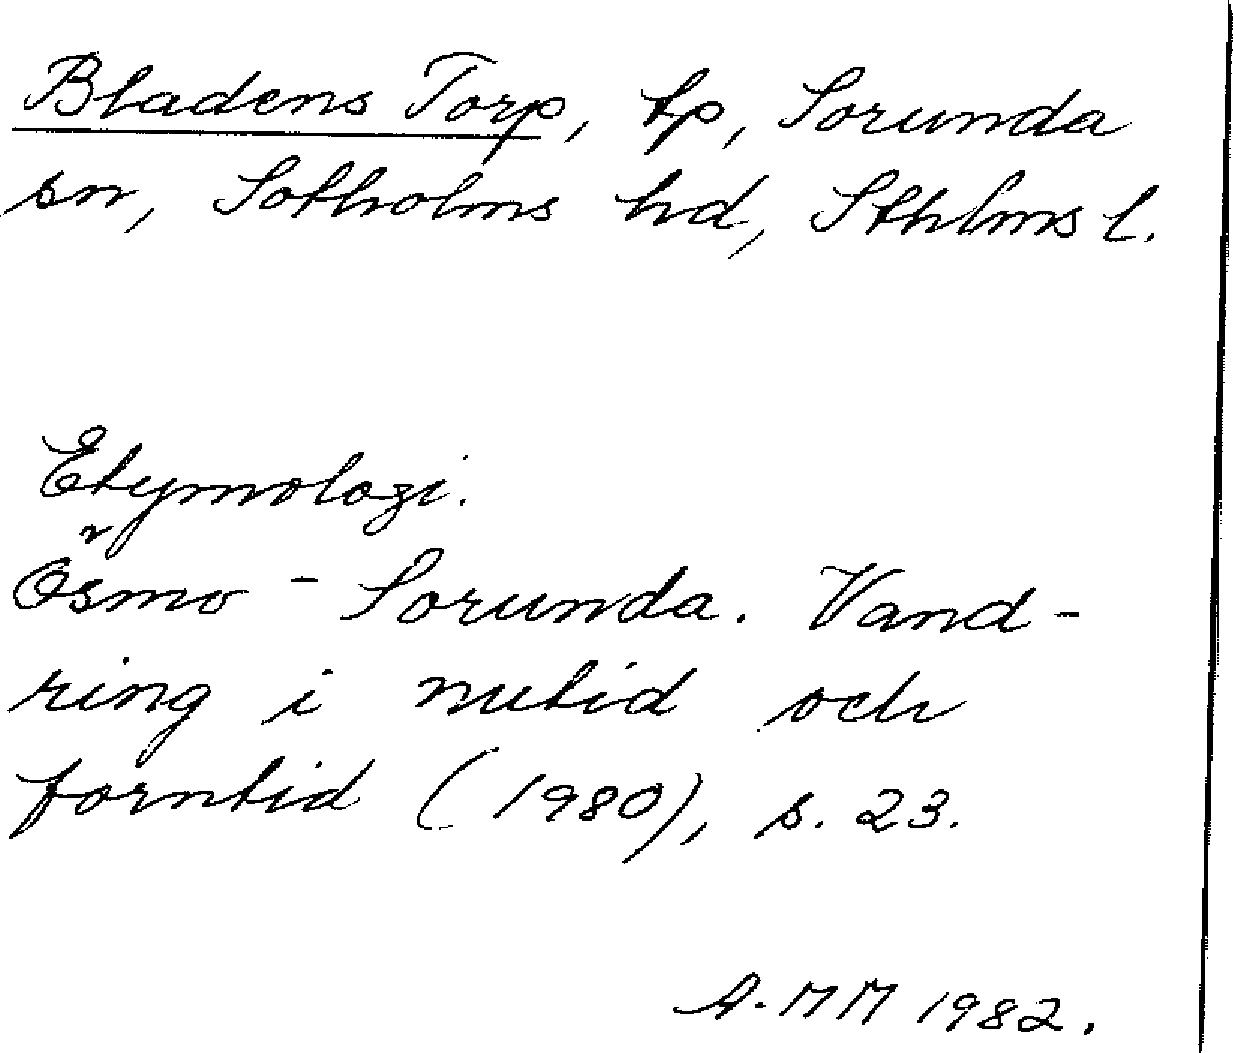 Bladens Torp, tp, Sorunda
sn, Sotholms hd, Sthlms l.
Etymologi.
Ösmo - Sorunda. Vand-
ring i nutid och
forntid (1980), s. 23.
A. MM 1982.